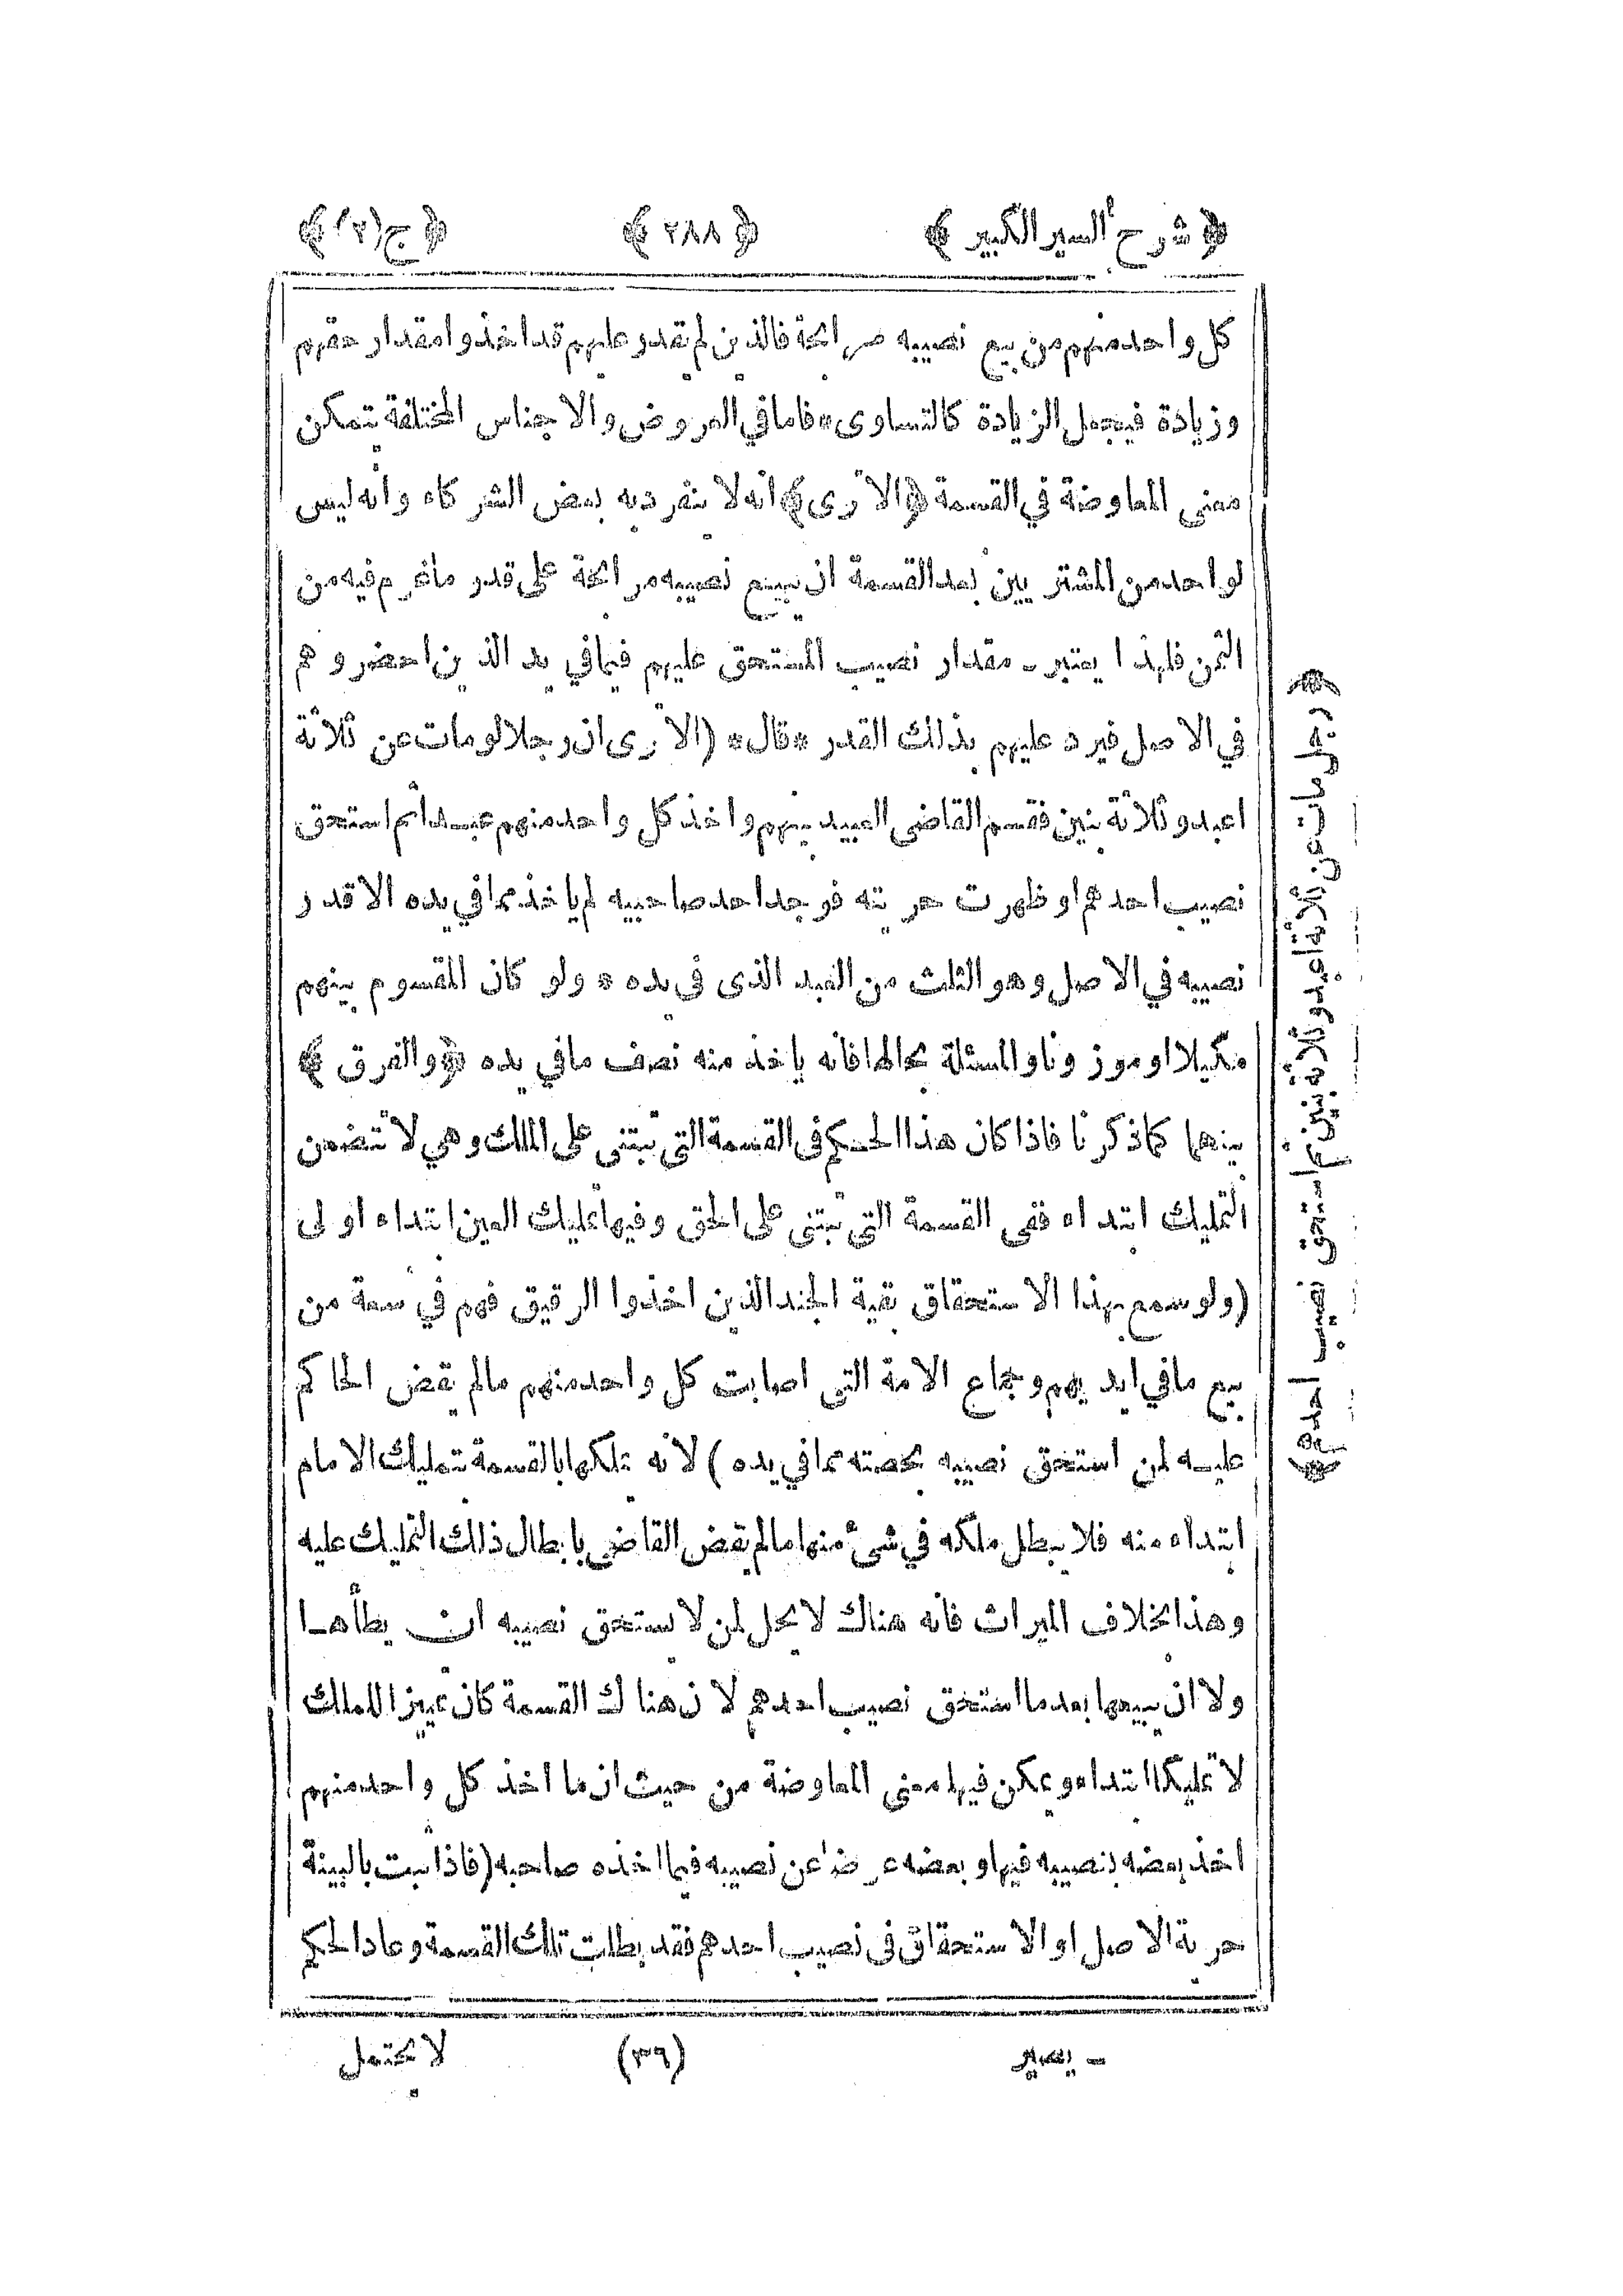 ﴿ شرح السير الكبير ﴾ ﴿ ٢٨٨ ﴾ ﴿ ج (٢) ﴾
كل واحد منهم من بيع نصيبه مرابحة فالذين لم يقدر عليهم قد اخذوا مقدار حقهم
وزيادة فيجعل الزيادة كالتساوى * فاما في العروض والاجناس المختلفة يتمكن
معنى المعاوضة في القسمة ﴿ الا ترى ﴾ انه لا ينفرد به بعض الشركاء وانه ليس
لواحد من المشتريين بعد القسمة ان يبيع نصيبه مرابحة على قدر ما غرم فيه من
الثمن فلهذا يعتبر ـ مقدار نصيب المستحق عليهم فيما في يد الذين احضروهم
في الاصل فيرد عليهم بذلك القدر * قال * (الا ترى ان رجلا لو مات عن ثلاثة
اعبد وثلاثة بنين فقسم القاضى العبيد بينهم واخذ كل واحد منهم عبدا ثم استحق
نصيب احدهم او ظهرت حريته فوجد احد صاحبيه لم ياخذ مما في يده الا قدر
نصيبه في الاصل وهو الثلث من العبد الذى فى يده * ولو كان المقسوم بينهم
مكيلا او موزونا والمسئلة بحالها فانه ياخذ منه نصف ما في يده ﴿ والفرق ﴾
بينهما كما ذكرنا فاذا كان هذا الحكم فى القسمة التى تبتنى على الملك وهي لا تتضمن
التمليك ابتداء ففى القسمة التى تبتنى على الحق وفيها تمليك العين ابتداء اولى
(ولو سمع بهذا الاستحقاق بقية الجند الذين اخذوا الرقيق فهم في سعة من
بيع ما في ايديهم وجماع الامة التى اصابت كل واحد منهم ما لم يقض الحاكم
عليه لمن استحق نصيبه بحصته مما في يده) لانه تملكها بالقسمة بتمليك الامام
ابتداء منه فلا يبطل ملكه في شئ منها ما لم يقض القاضى بابطال ذلك التمليك عليه
وهذا بخلاف الميراث فانه هناك لا يحل لمن لا يستحق نصيبه ان يطأها
ولا ان يبيعها بعد ما استحق نصيب احدهم لان هناك القسمة كان تمييزا للملك
لا تمليكا ابتداء ويمكن فيها معنى المعاوضة من حيث ان ما اخذ كل واحد منهم
اخذ بعضه بنصيبه فيها وبعضه عوضا عن نصيبه فيما اخذه صاحبه (فاذا ثبت بالبينة
حرية الاصل او الاستحقاق فى نصيب احدهم فقد بطلت تلك القسمة وعاد الحكم
﴿ رجل مات عن ثلاثة اعبد وثلاثة بنين ثم استحق نصيب احدهم ﴾
ـ يصير (٣٦) لا يحتمل